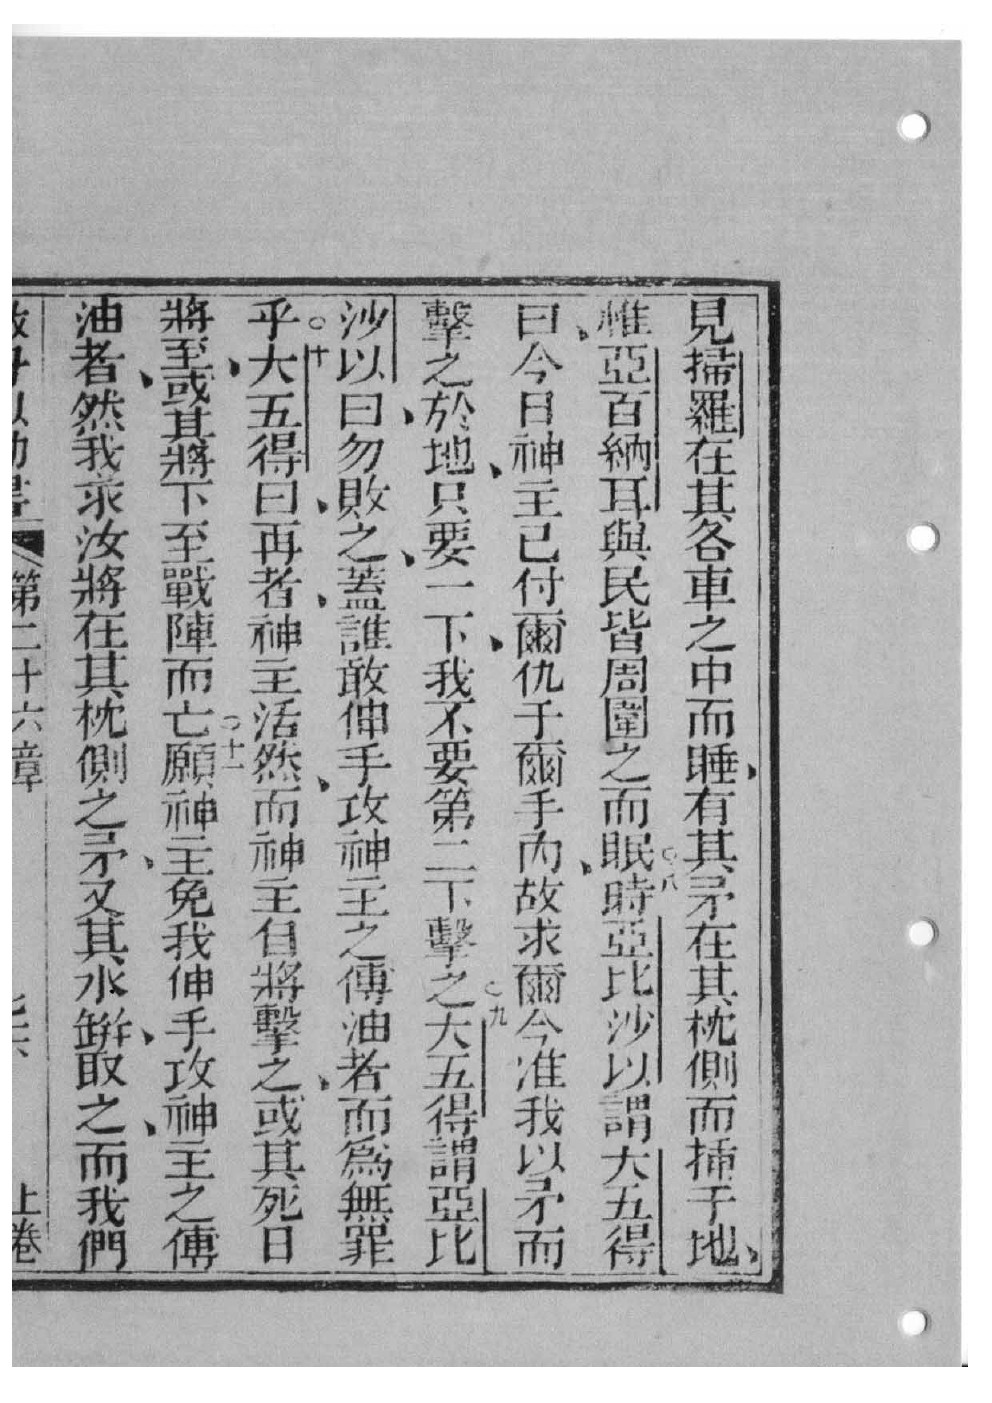 見掃羅在其各車之中而睡、有其矛在其枕側而揷于地、
惟亞百納耳與民皆周圍之而眠○八時亞比沙以謂大五得
曰、今日神主已付爾仇于爾手內、故求爾今准我以矛而
擊之於地、只要一下、我不要第二下擊之○九大五得謂亞比
沙以曰、勿敗之、蓋誰敢伸手攻神主之傅油者而爲無罪
乎○十大五得曰、再者、神主活然、而神主自將擊之、或其死日
將至、或其將下至戰陣而亡○十一願神主免我伸手攻神主之傅
油者、然我求汝將在其枕側之矛、又其水缾、取之、而我們
第二十六章 上卷